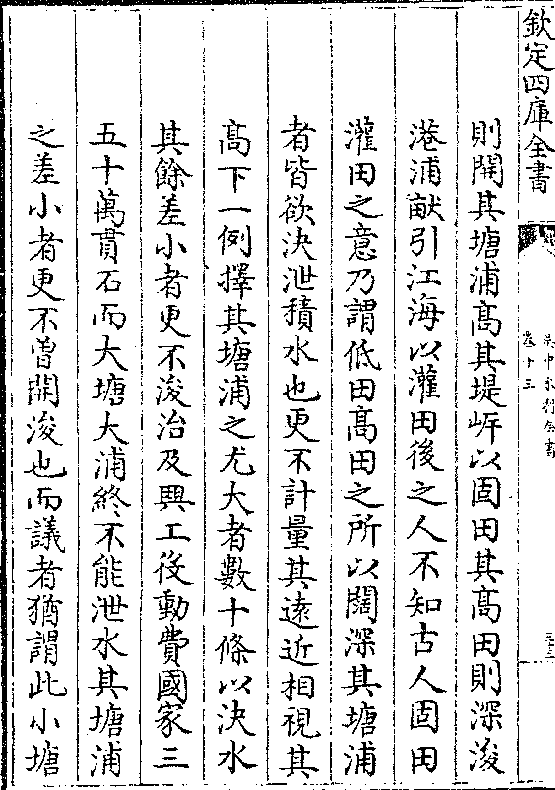 欽定四庫全書
吳中水利全書
卷十三
則開其塘浦高其堤岸以固田其高田則深浚
港浦畎引江海以灌田後之人不知古人固田
灌田之意乃謂低田高田之所以闊深其塘浦
者皆欲決泄積水也更不計量其遠近相視其
高下一例擇其塘浦之尤大者數十條以決水
其餘差小者更不浚治及興工役動費國家三
五十萬貫石而大塘大浦終不能泄水其塘浦
之差小者更不曾開浚也而議者猶謂此小塘